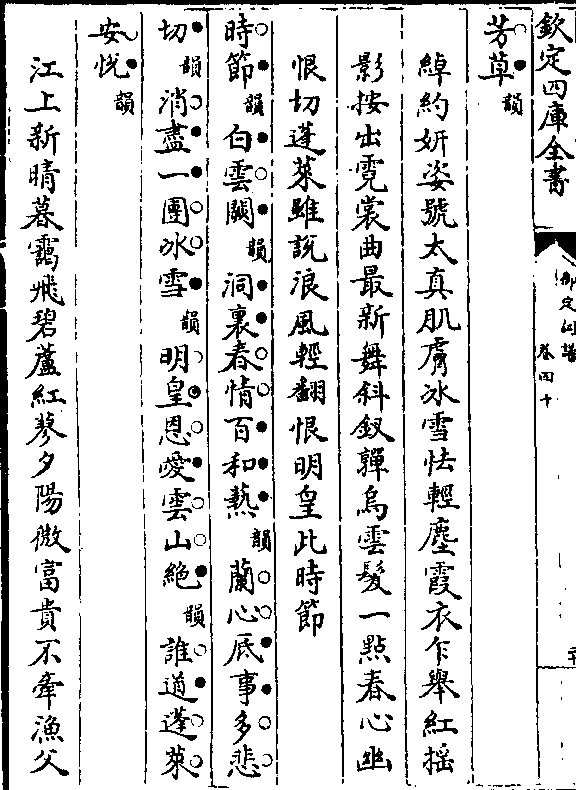 欽定四庫全書
御定詞譜
卷四十
芳草韻
綽約妍姿號太真肌膚冰雪怯輕塵霞衣乍舉紅搖
影按出霓裳曲最新舞斜釵嚲烏雲髮一點春心幽
恨切蓬萊雖說浪風輕翻恨明皇此時節
時節韻白雲闕韻洞裏春情百和爇韻蘭心底事多悲
切韻消盡一團冰雪韻明皇恩愛雲山絶韻誰道蓬萊
安悦韻
江上新晴暮靄飛碧蘆紅蓼夕陽微富貴不牽漁父